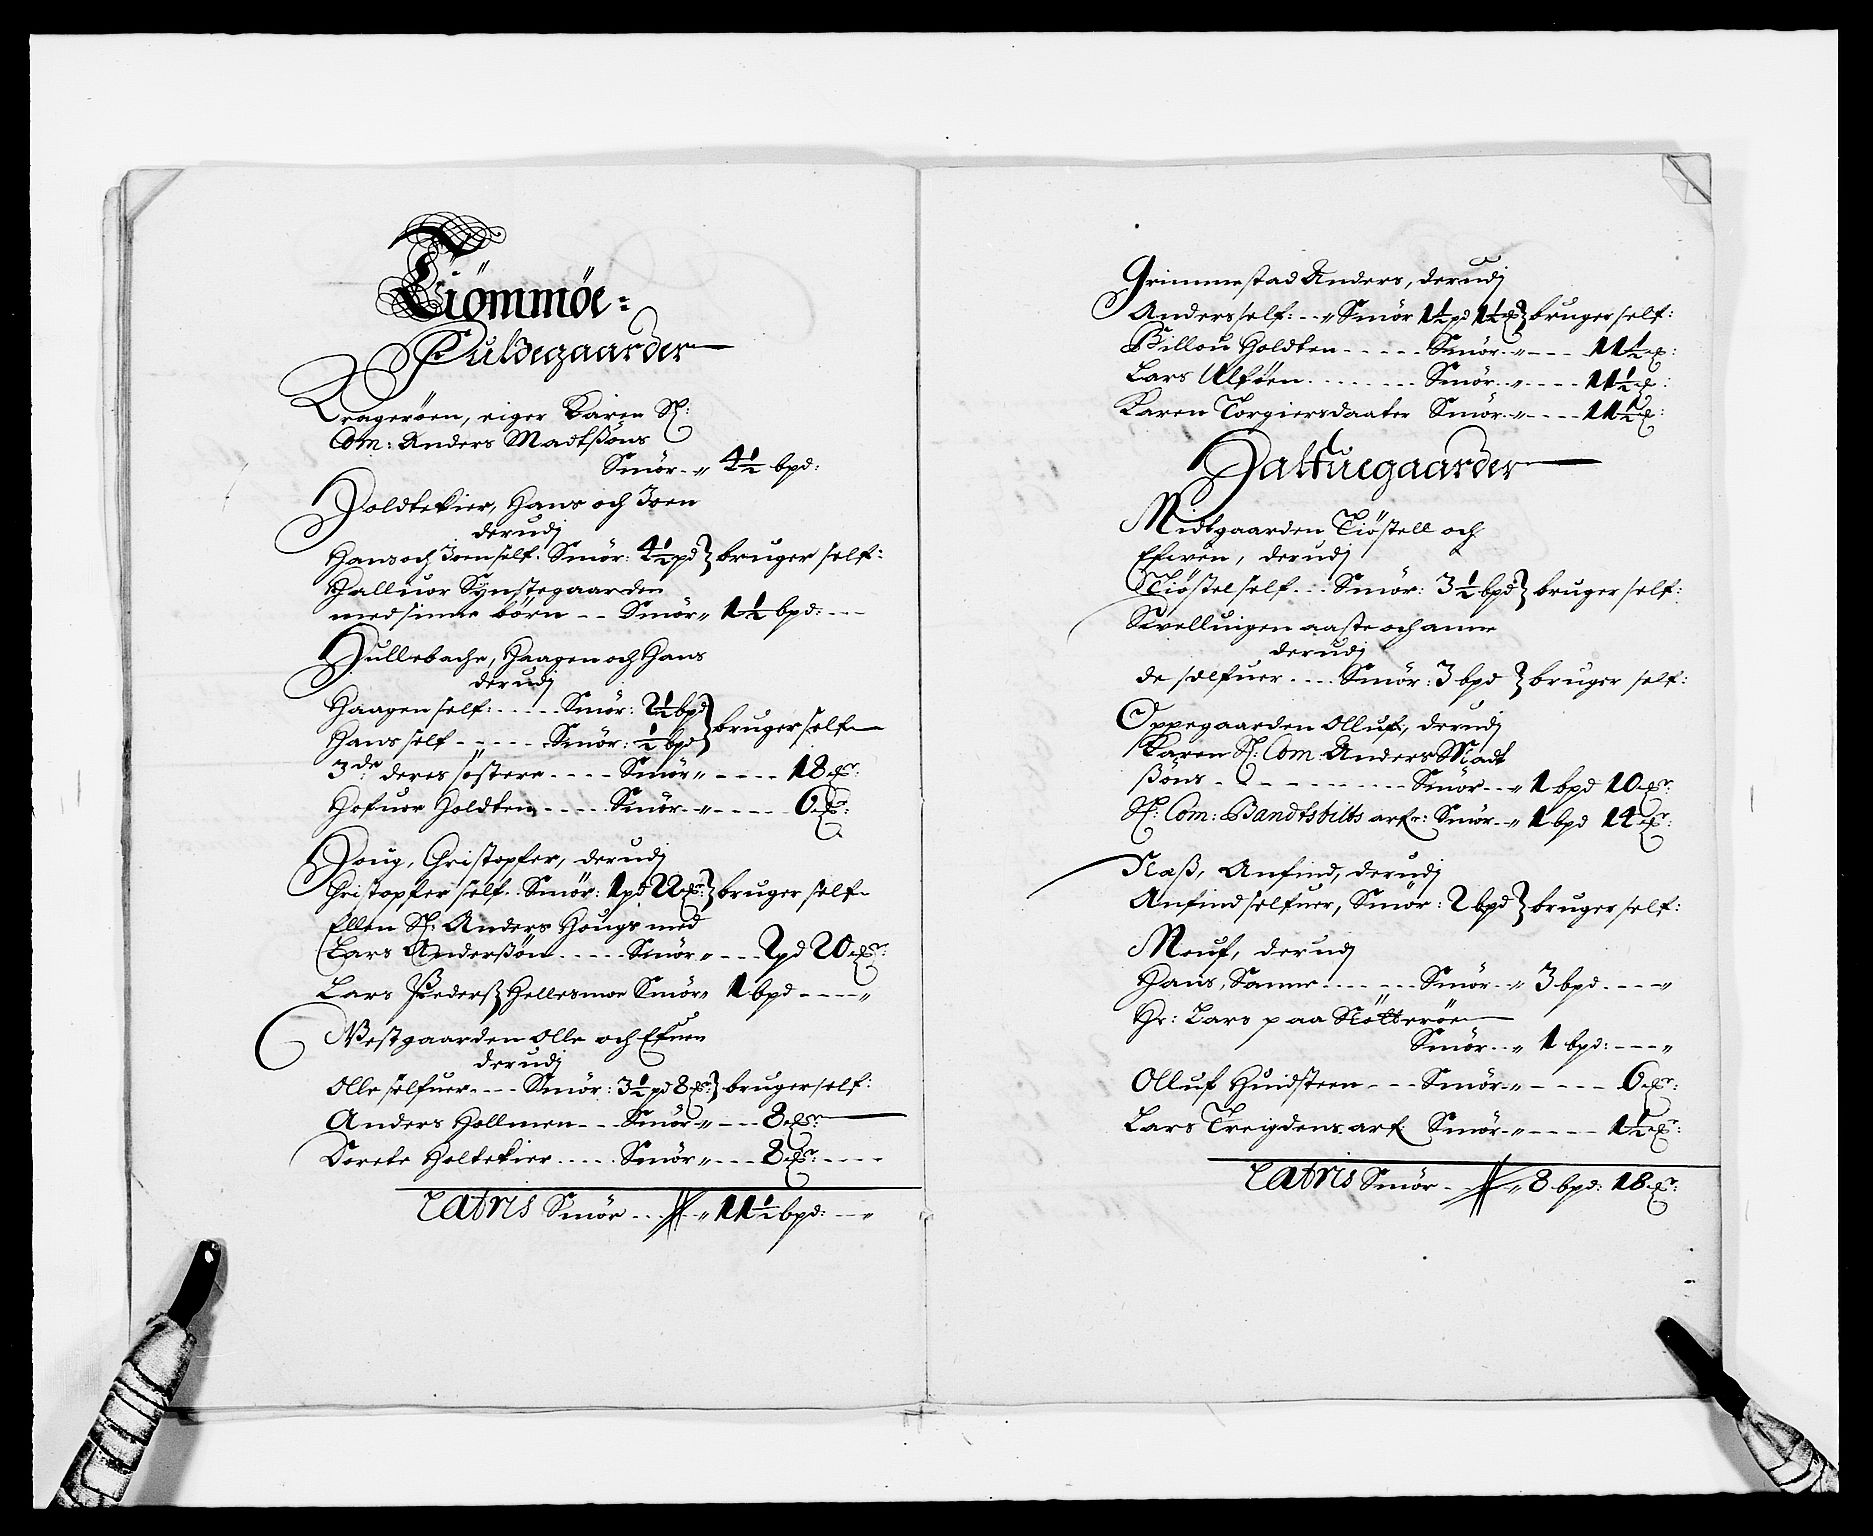 Tiömmöe:
Fuldegaarder
Kragerøen, eiger Karen Sl:
Com: Anders Madtßöns
Smör - „ 4½ bpd:
Holdtekier, Hans och Joen
derudj
Hans och Joen self. Smör: 4½ pd } bruger self:
Halluor Synstegaarden
med sinne börn - - Smör „ 1½ bpd: - -
Hullebache, Haagen och Hans
derudj
Haagen self: - - - - Smör: 2½ bpd } bruger self
Hans self - - - - - Smör: ½ bpd
3de deres söstere - - - - Smör „ - - - - 18 mr:
Hofuor Holdten - - - - Smör - „ - - - - 6 mr:
Houg, Christopfer, derudj
Christopfer self - : Smör: 1 pd 22 mr: } bruger self
Ellen Sl: Anders Hougs med
Lars Anderßön - - - - - Smör „ - - - 2 pd 20 mr:
Lars Pederß Hellesmoe Smör „ 1 bpd - - - „
Westgaarden Olle och Efuen
derudj
Olle selfuer - - - Smör: 3½ pd 8 mr } bruger self:
Anders Hollmen - - - Smör „ - - - 8 mr:
Dorete Holtekier - - - - - Smör „ - - - 8 mr: - - - -
Latris Smör - - - „ 11½ bpd: - - „
Grimmestad Anders, derudj
Anders self: - - „ Smör 1½ pd 1½ mr } bruger self:
Billou Holdten - - - - - Smör - „ - - - 11½ mr:
Lars Ulföen - - - - - - - - Smör - „ - - - - 11½ mr:
Karen Torgiersdaater Smör - „ - - - 11½ mr:
Halfuegaarder
Midtgaarden Tiöstell och
Efwen, derudj
Tiöstel self - - - Smör: 3½ bpd } bruger self:
Svellingen aaste och anne
derudj
de selfuer - - - - Smör: 3 bpd } bruger self:
Oppegaarden Olluf, derudj
Karen Sl: Com: Anders Madt
ßöns - - - - - - - - - - Smör - - „ 1 bpd 10 mr:
Sl: Com: Bandtsbilts arf: Smör - „ 1 bpd 14 mr:
Næß, Anfind, derudj
Anfind selfuer, Smör: 2 bpd } bruger self:
Meuf, derudj
Hans, Sanne - - - - - - Smör - „ 3 bpd - - - „
Hr: Lars paa Nötteröe
Smör - - „ 1 bpd: - - - „
Olluf Huidsteen - - - Smör - „ - - - - 6 mr:
Lars Treigdens arf: Smör - „ - - - - 1½ mr:
Latris Smör - - „ 8 bpd: 18 mr: